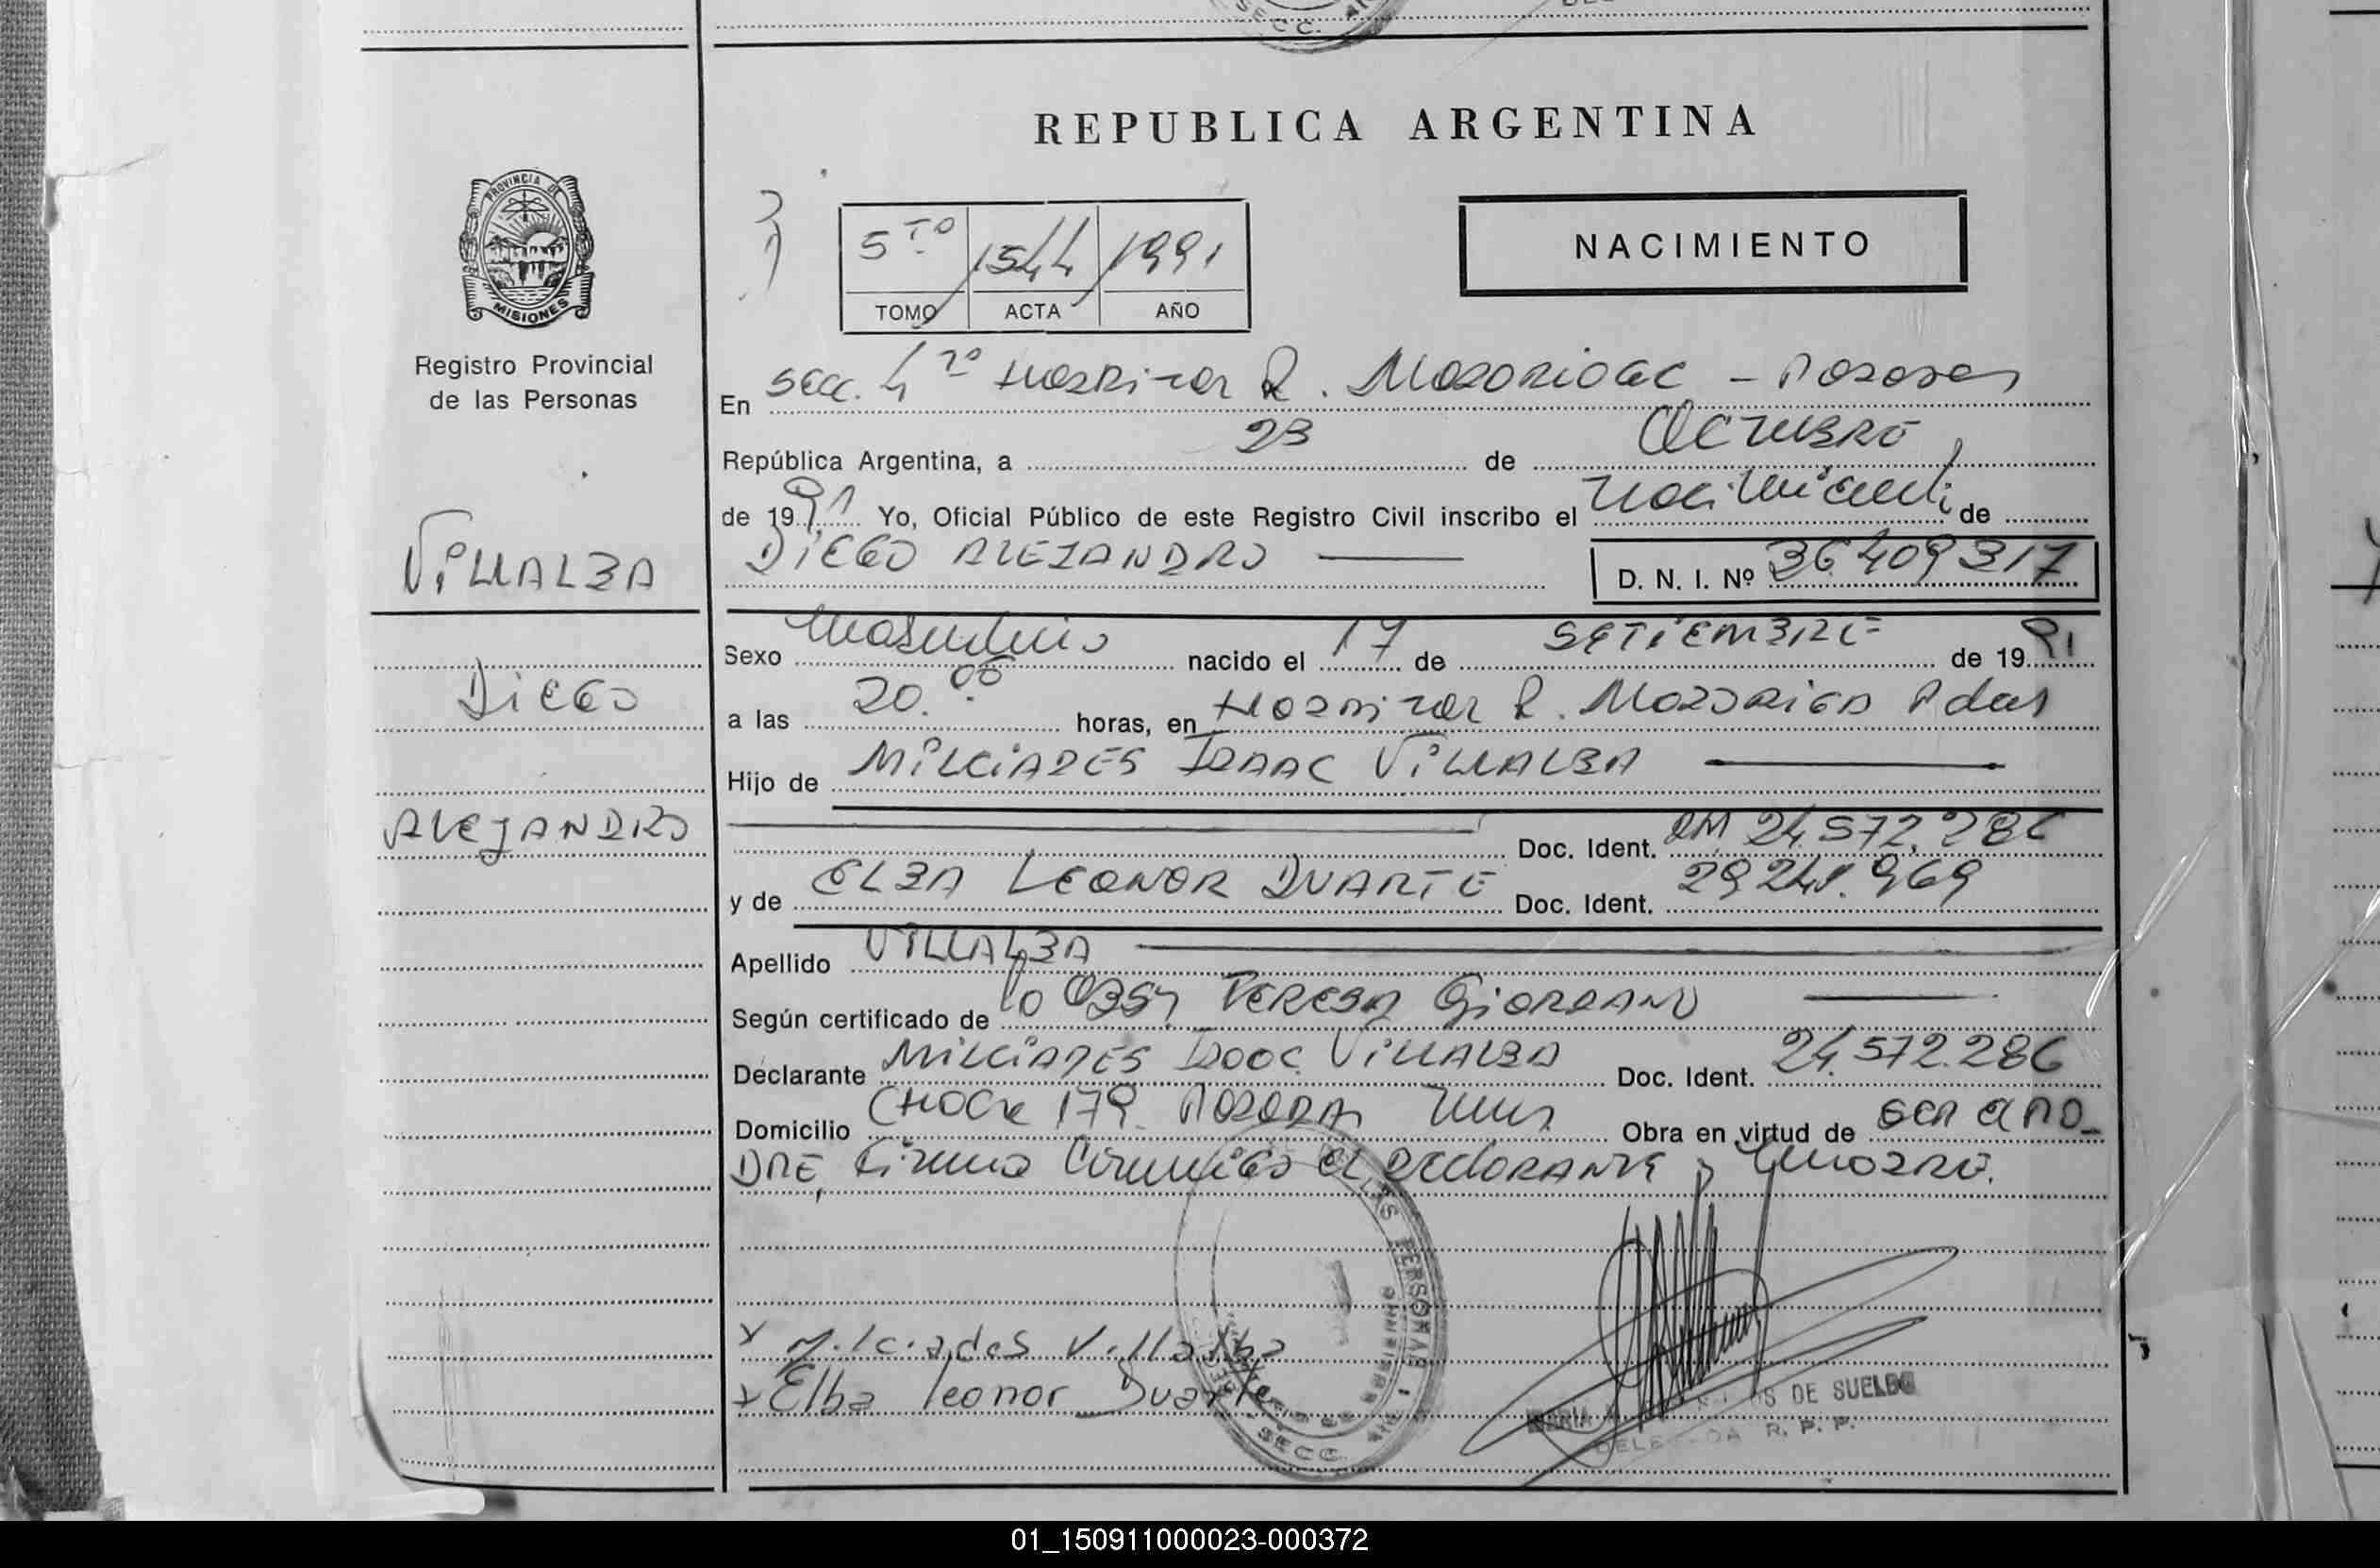 SECC.
REPUBLICA ARGENTINA
PROVINCIA DE
MISIONES
5TO 1544 1991
TOMO ACTA AÑO
NACIMIENTO
Registro Provincial
de las Personas
En Secc. 4
República Argentina, a 23 de Octubre
de 1991 Yo, Oficial Público de este Registro Civil inscribo el nacimiento de
VILLALBA
DIEGO ALEJANDRO
D. N. I. Nº 36409317
Sexo Masculino nacido el 17 de SETIEMBRE de 1991
DIEGO
a las 20.00 horas, en Hospital R. Madariaga Pdas
Hijo de MILCIADES ISAAC VILLALBA
ALEJANDRO
Doc. Ident. DM 24.572.286
y de ELBA LEONOR DUARTE Doc. Ident. 29241.969
Apellido VILLALBA
Según certificado de la Obst TERESA GIORDANO
Declarante MILCIADES ISAAC VILLALBA Doc. Ident. 24.572.286
Domicilio Posadas Obra en virtud de ser el PA-
DRE, Firma el DECLARANTE y
x Milciades Villalba
x Elba leonor Duarte
LAS PERSONAS
SECC.
DE SUELDO
R. P. P.
01_150911000023-000372